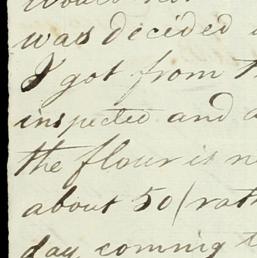 would not
was decided
I got from
inspected and
the flour is
about 50 (rat
day coming